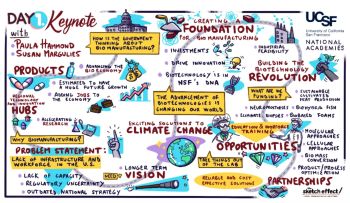 DAY 1 Keynote
with
PAULA HAMMOND
SUSAN MARGULIES
HOW IS THE GOVERNMENT
THINKING ABOUT
BIOMANUFACTURING?
CREATING
FOUNDATION
FOR BIOMANUFACTURING
INVESTMENTS
DRIVE INNOVATION
BIOTECHNOLOGY IS IN
NSF'S DNA
INDUSTRIAL
FEASIBILITY
UCSF
University of California
San Francisco
NATIONAL
ACADEMIES
PRODUCTS
ADVANCING THE
BIOECONOMY
ESTIMATED TO HAVE
A HUGE FUTURE GROWTH
ADDING JOBS TO THE
ECONOMY
REGIONAL
TECHNOLOGY
AND INNOVATION
HUBS
ACCELERATES
RESEARCH
THE ADVANCEMENT OF
BIOTECHNOLOGIES IS
CHANGING OUR WORLD
BUILDING THE
BIOTECHNOLOGY
REVOLUTION
WHAT ARE WE
FUNDING?
WHY BIOMANUFACTURING?
PROBLEM STATEMENT:
LACK OF INFRASTRUCTURE AND
WORKFORCE IN THE U.S.
LACK OF CAPACITY
REGULATORY UNCERTAINTY
OUTDATED NATIONAL STRATEGY
NEED
LONGER TERM
VISION
EXCITING SOLUTIONS TO
CLIMATE CHANGE
EDUCATION & WORKFORCE
TRAINING
OPPORTUNITIES
TAKE THINGS OUT
OF THE LAB
RELIABLE AND COST
EFFECTIVE SOLUTIONS
MOLECULAR
APPROACHES
CELLULAR
APPROACHES
BIOMASS
CONVERSION
PRODUCT/PROCESS
OPTIMIZATION
PARTNERSHIPS
sketch effect